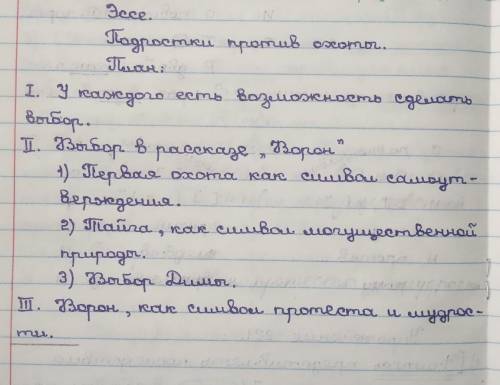 Эссе.
Подростки против охоты.
План:
I. У каждого есть возможность сделать
выбор.
II. Выбор в рассказе „Ворон"
1) Первая охота как символ самоут-
верждения.
2) Тайга, как символ могущественной
природы.
3) Выбор Димы.
III. Ворон, как символ протеста и мудрос-
ти.